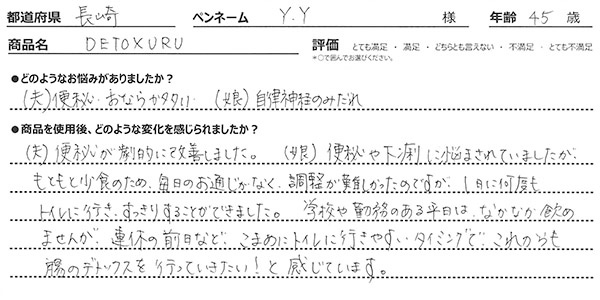 都道府県 長崎 ペンネーム Y.Y 様 年齢 45 歳
商品名 DETOXURU 評価 とても満足 ・ 満足 ・ どちらとも言えない ・ 不満足 ・ とても不満足
*○で囲んでお選びください。
●どのようなお悩みがありましたか？
(夫)便秘・おならが多い (娘)自律神経のみだれ
●商品を使用後、どのような変化を感じられましたか？
(夫)便秘が劇的に改善しました。 (娘)便秘や下痢に悩まされていましたが、
もともと少食のため、毎日のお通じがなく、調整が難しかったのですが、1日に何度も
トイレに行き、すっきりすることができました。 学校や勤務のある平日は、なかなか飲め
ませんが、連休の前日など、こまめにトイレに行きやすいタイミングで、これからも
腸のデトックスを行っていきたい！と感じています。